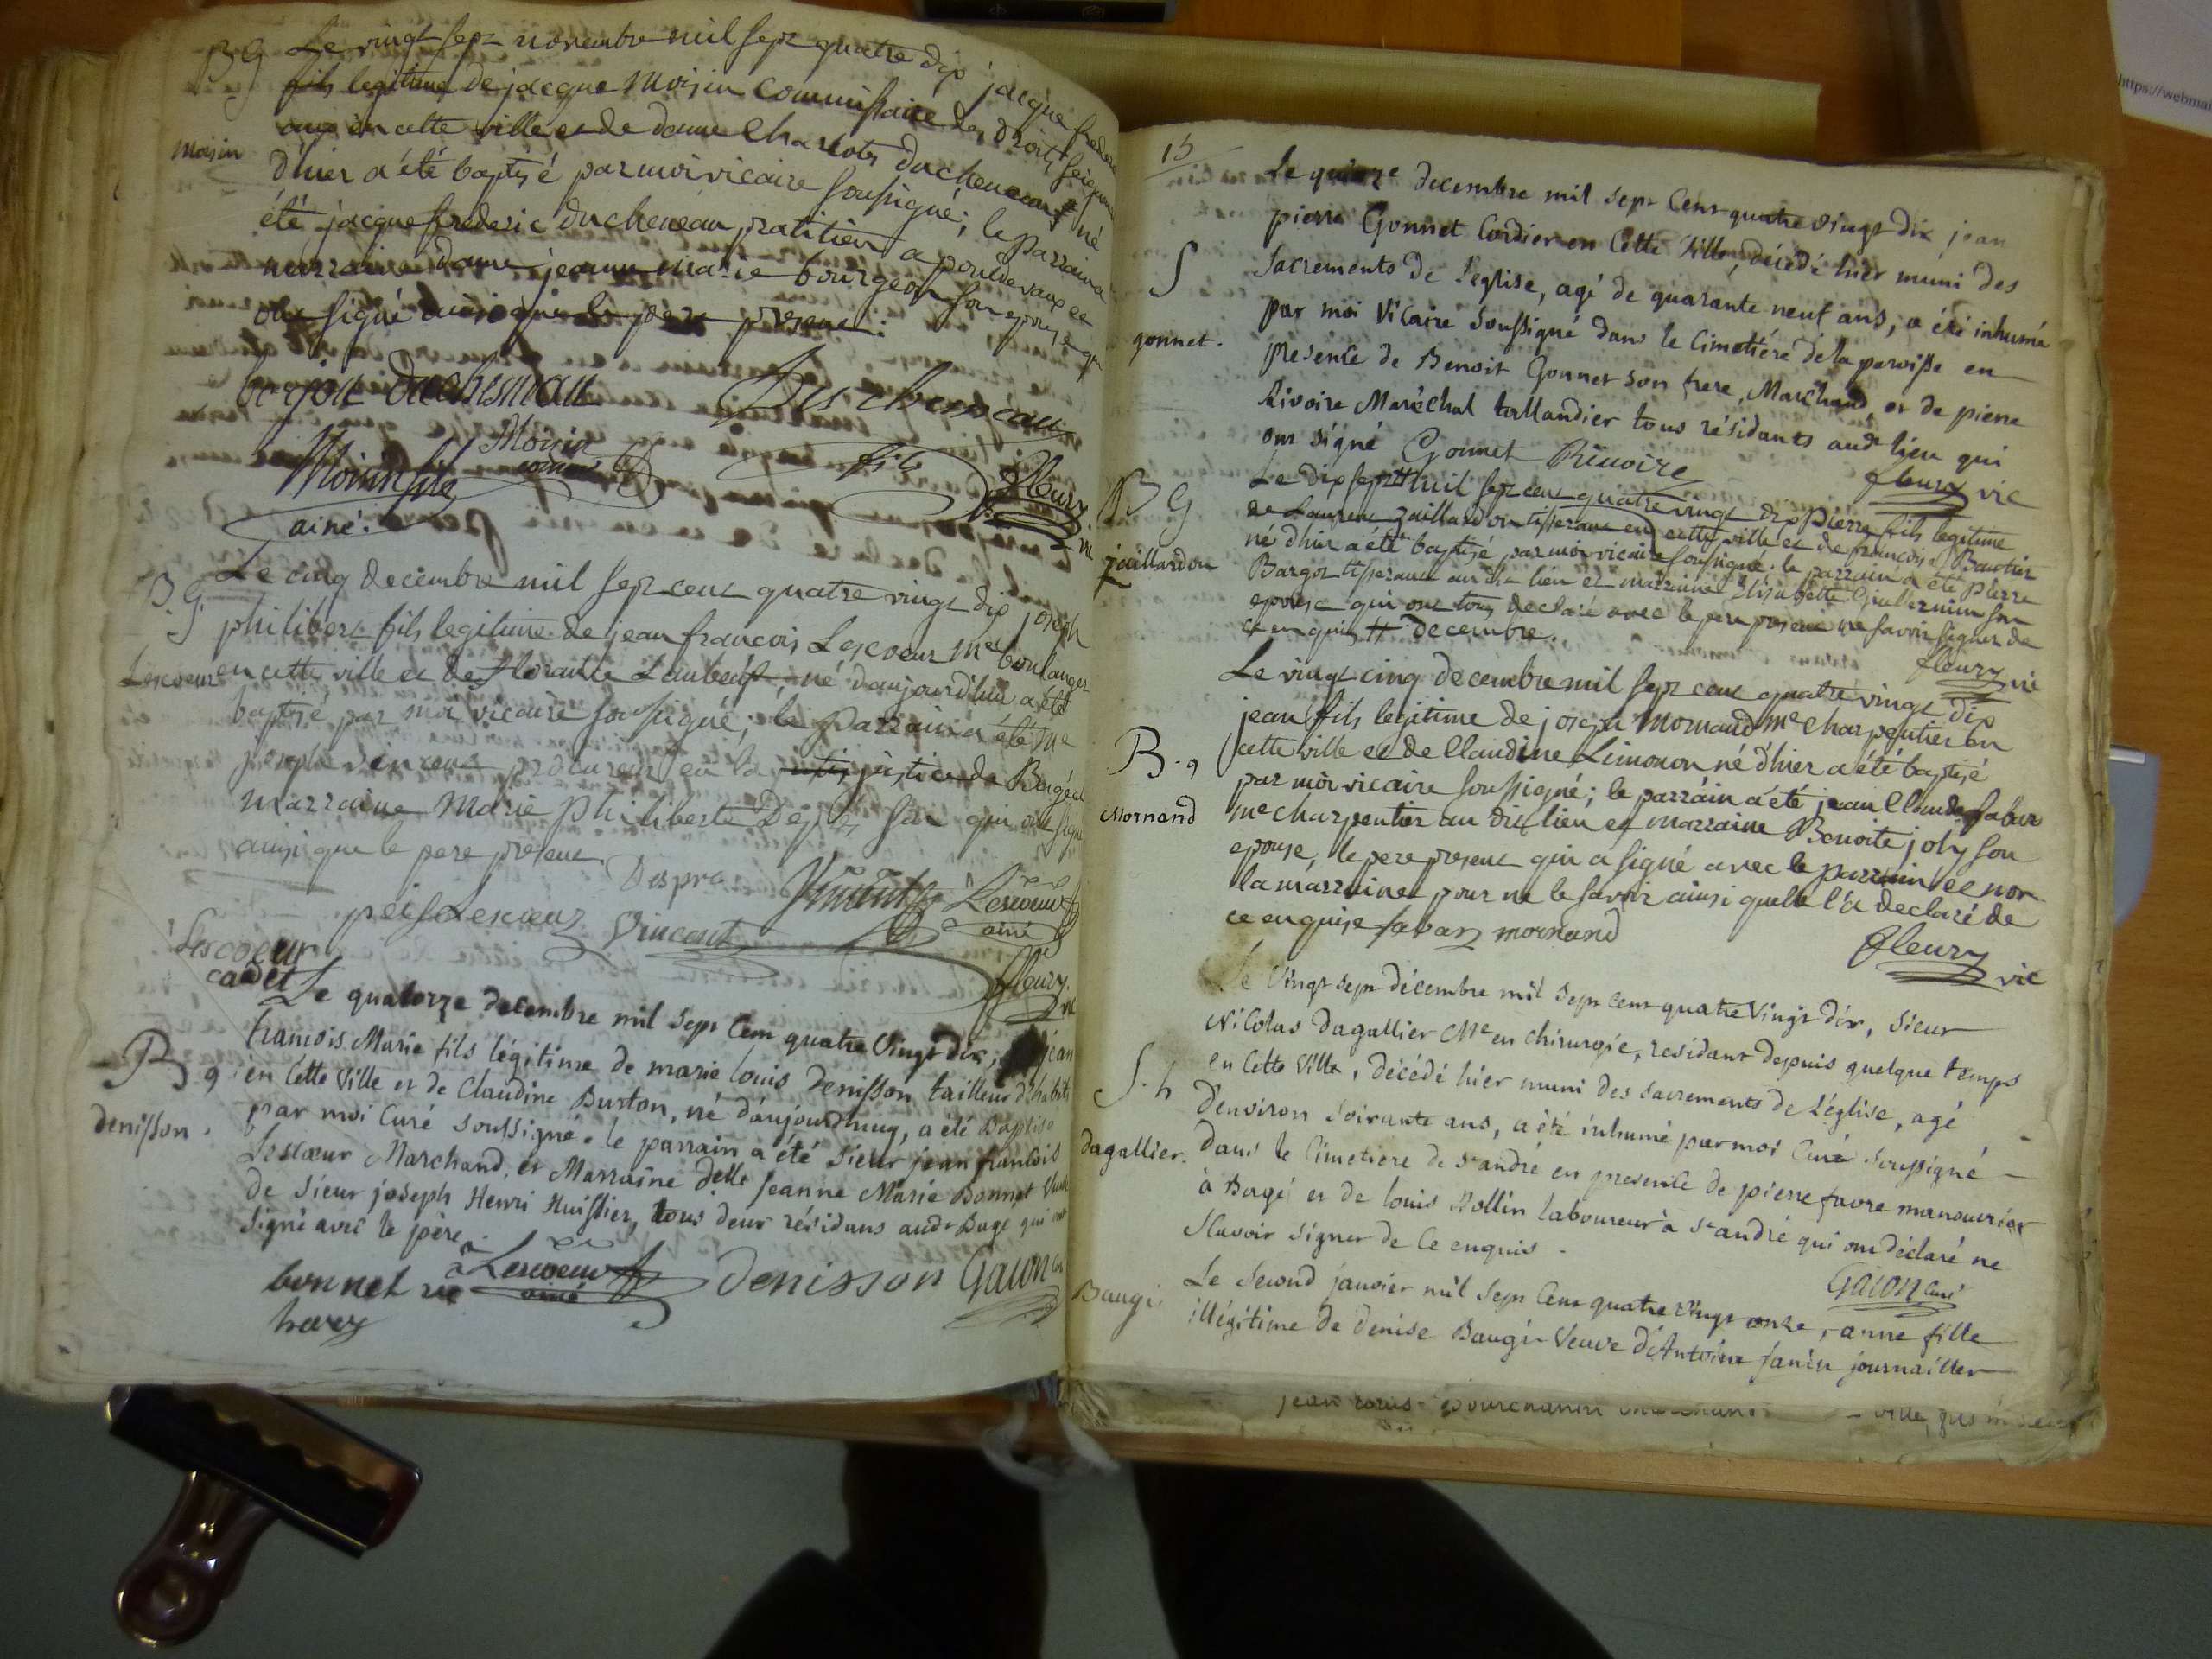 B g Le vingt sept novembre mil sept quatre dix jacque frederic
fils legitime de jacque Moisin Commissaire des droits seigneuri
aux en cette ville et de dame Charlote Ducheneau né
Moisin
d'hier a été baptisé par moi vicaire soussigné; le parrain a
été jacque frederic Ducheneau pratitien a pondevaux et
marraine dame jeanne marie bourgeon son epouse qui
ont signé ainsi que le pere present.
Descheneau
fils
Moisin
Moisin fils
ainé.
fleury vic
B. g. Le cinq decembre mil sept cent quatre vingt dix joseph
philibert fils legitime de jean francois Lescoeur me boulanger
Lescoeur en cette ville et de né d'aujourd'hui a été
baptisé par moi vicaire soussigné; le parrain a été me
joseph vincent procureur en la justice de Bagé et
marraine Marie Philiberte qui ont signé
ainsi que le pere present.
Vincent Lescoeur
ainé
Vincent
Lescoeur
cadet
fleury vic
Le quatorze decembre mil sept cent quatre vingt dix, jean
francois Marie fils légitime de marie louis denisson tailleur d'habits
B g en cette ville et de Claudine Burton, né d'aujourdhuy, a été Baptisé
denisson.
par moi Curé soussigné. le parrain a été sieur jean francois
Lescœur Marchand, et Marraine delle Jeanne Marie Bonnet Veuve
de sieur joseph Henri Huissier, tous deux résidans audt Bagé qui ont
signé avec le père.
bonnet ve Lescoeur denisson Gacon curé
ainé
henry
15
Le quinze decembre mil sept Cent quatre vingt dix jean
pierre Gonnet Cordier en cette ville, décédé hier muni des
S
Sacrements de l'eglise, agé de quarante neuf ans, a été inhumé
gonnet.
par moi Vicaire soussigné dans le Cimetiére de la paroisse en
presence de Benoit Gonnet son frere, Marchand, et de pierre
Rivoire Maréchal tallandier tous résidants audt lieu qui
ont signé Gonnet Rivoire
fleury vic
B G
Le dix sept mil sept cent quatre vingt dix Pierre fils legitime
de Laurent Jaillardon tisserant en cette ville et de francoise Bautier
jaillardon
né d'hier a été baptisé par moi vicaire soussigné. le parrain a été Pierre
Bargot tisserant au dit lieu et marraine Elisabette son
epouse qui ont tous declaré avec le pere present ne savoir signer de
ce enquis decembre.
fleury vic
Le vingt cinq decembre mil sept cent quatre vingt dix
jean fils legitime de joseph Mornand me charpentier en
B. g
cette ville et de Claudine Limonon né d'hier a été baptisé
par moi vicaire soussigné; le parrain a été jean Claude favar
Mornand
me charpentier au dit lieu et marraine Benoite joly son
epouse, le pere present qui a signé avec le parrain et non
la marraine pour ne le savoir ainsi quelle l'a declaré de
ce enquise favar mornand
fleury vic
Le Vingt sept décembre mil sept cent quatre Vingt dix, sieur
Nicolas Dagallier Me en chirurgie, residant depuis quelque temps
en cette Ville, décédé hier muni des sacrements de l'église, agé
S. h
d'environ soixante ans, a été inhumé par moi Curé soussigné
dagallier.
dans le Cimetiere de st andré en presence de pierre favre manouvrier
à Bagé et de louis Rollin laboureur à st andré qui ont déclaré ne
scavoir signer de Ce enquis.
Gacon curé
Baugi
Le second janvier mil sept cent quatre Vingt onze, anne fille
illégitime de denise Baugi Veuve d'Antoine journaillier